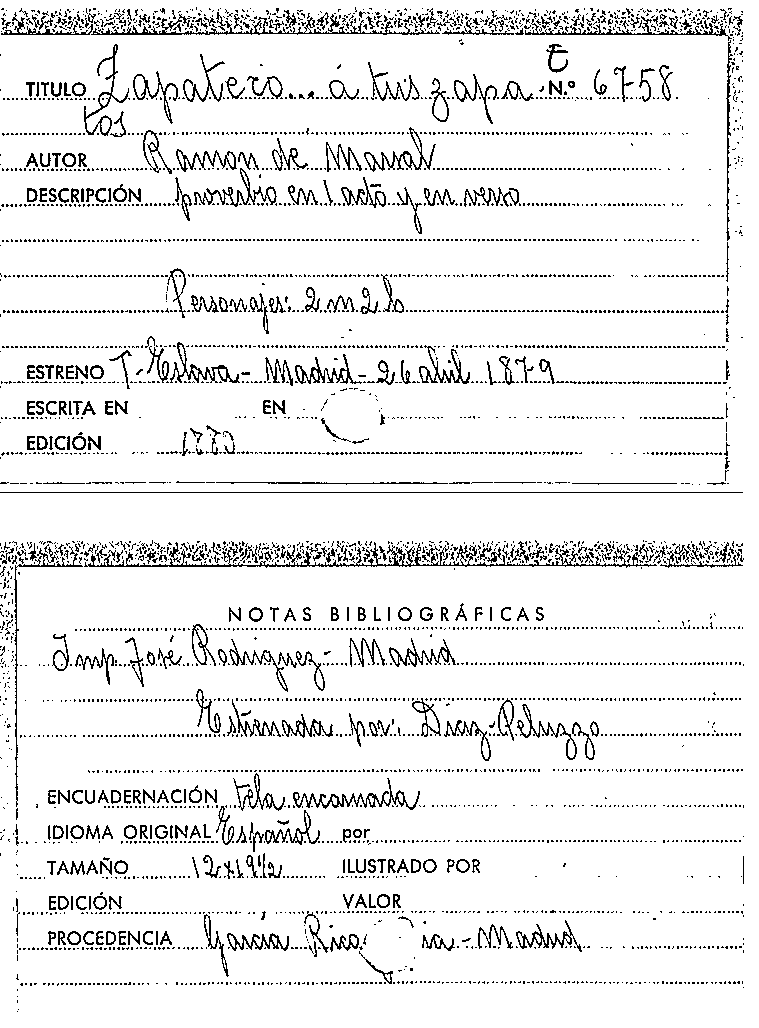 E
TITULO Zapatero... á tus zapa N.º 6758
tos
AUTOR Ramon de Marsal
DESCRIPCIÓN proverbio en 1 acto y en verso
Personajes: 2 m 2 h
ESTRENO T. Eslava - Madrid - 26 abril 1879
ESCRITA EN EN
EDICIÓN
NOTAS BIBLIOGRÁFICAS
Imp. José Rodriguez - Madrid
Estrenada por: Diaz-Peluzzo
ENCUADERNACIÓN tela encarnada
IDIOMA ORIGINAL Español por
TAMAÑO 12x19½ ILUSTRADO POR
EDICIÓN VALOR
PROCEDENCIA Garcia Rico ia - Madrid